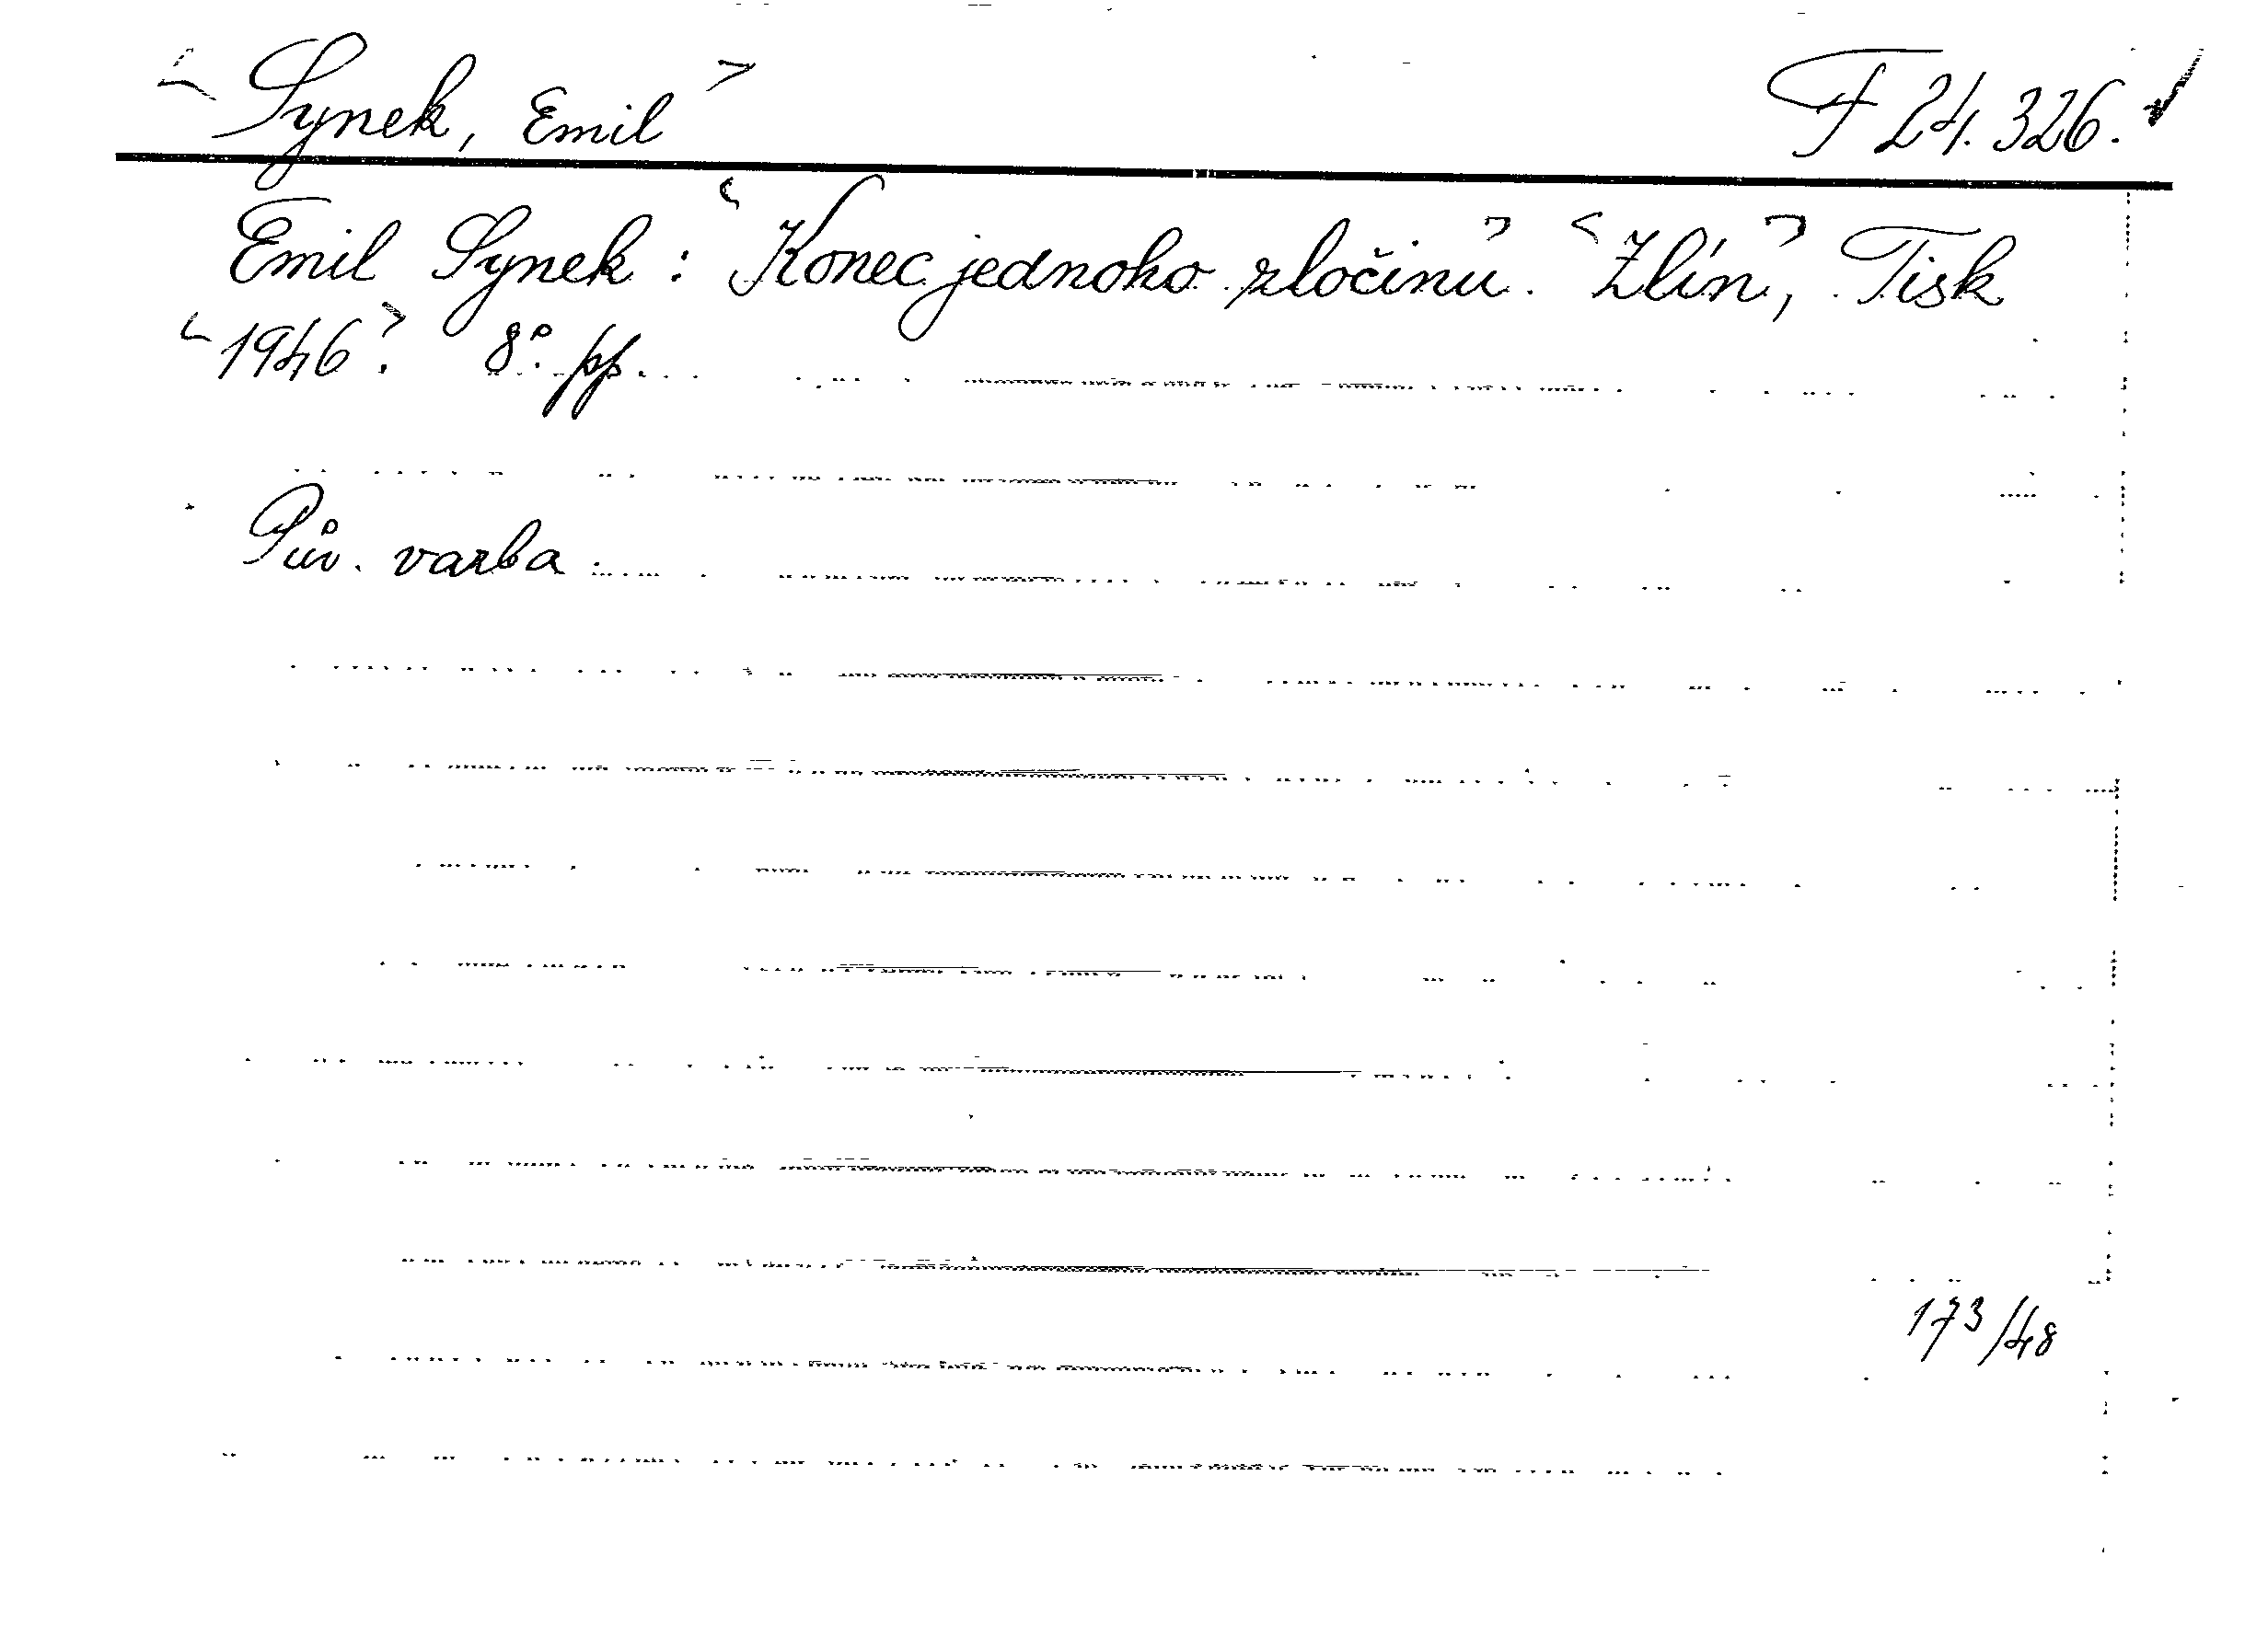 Synek, Emil F 24.326.
Emil Synek: Konec jednoho zločinu. Zlín, Tisk
1946. 8°. pp.
Pův. vazba.
173/48